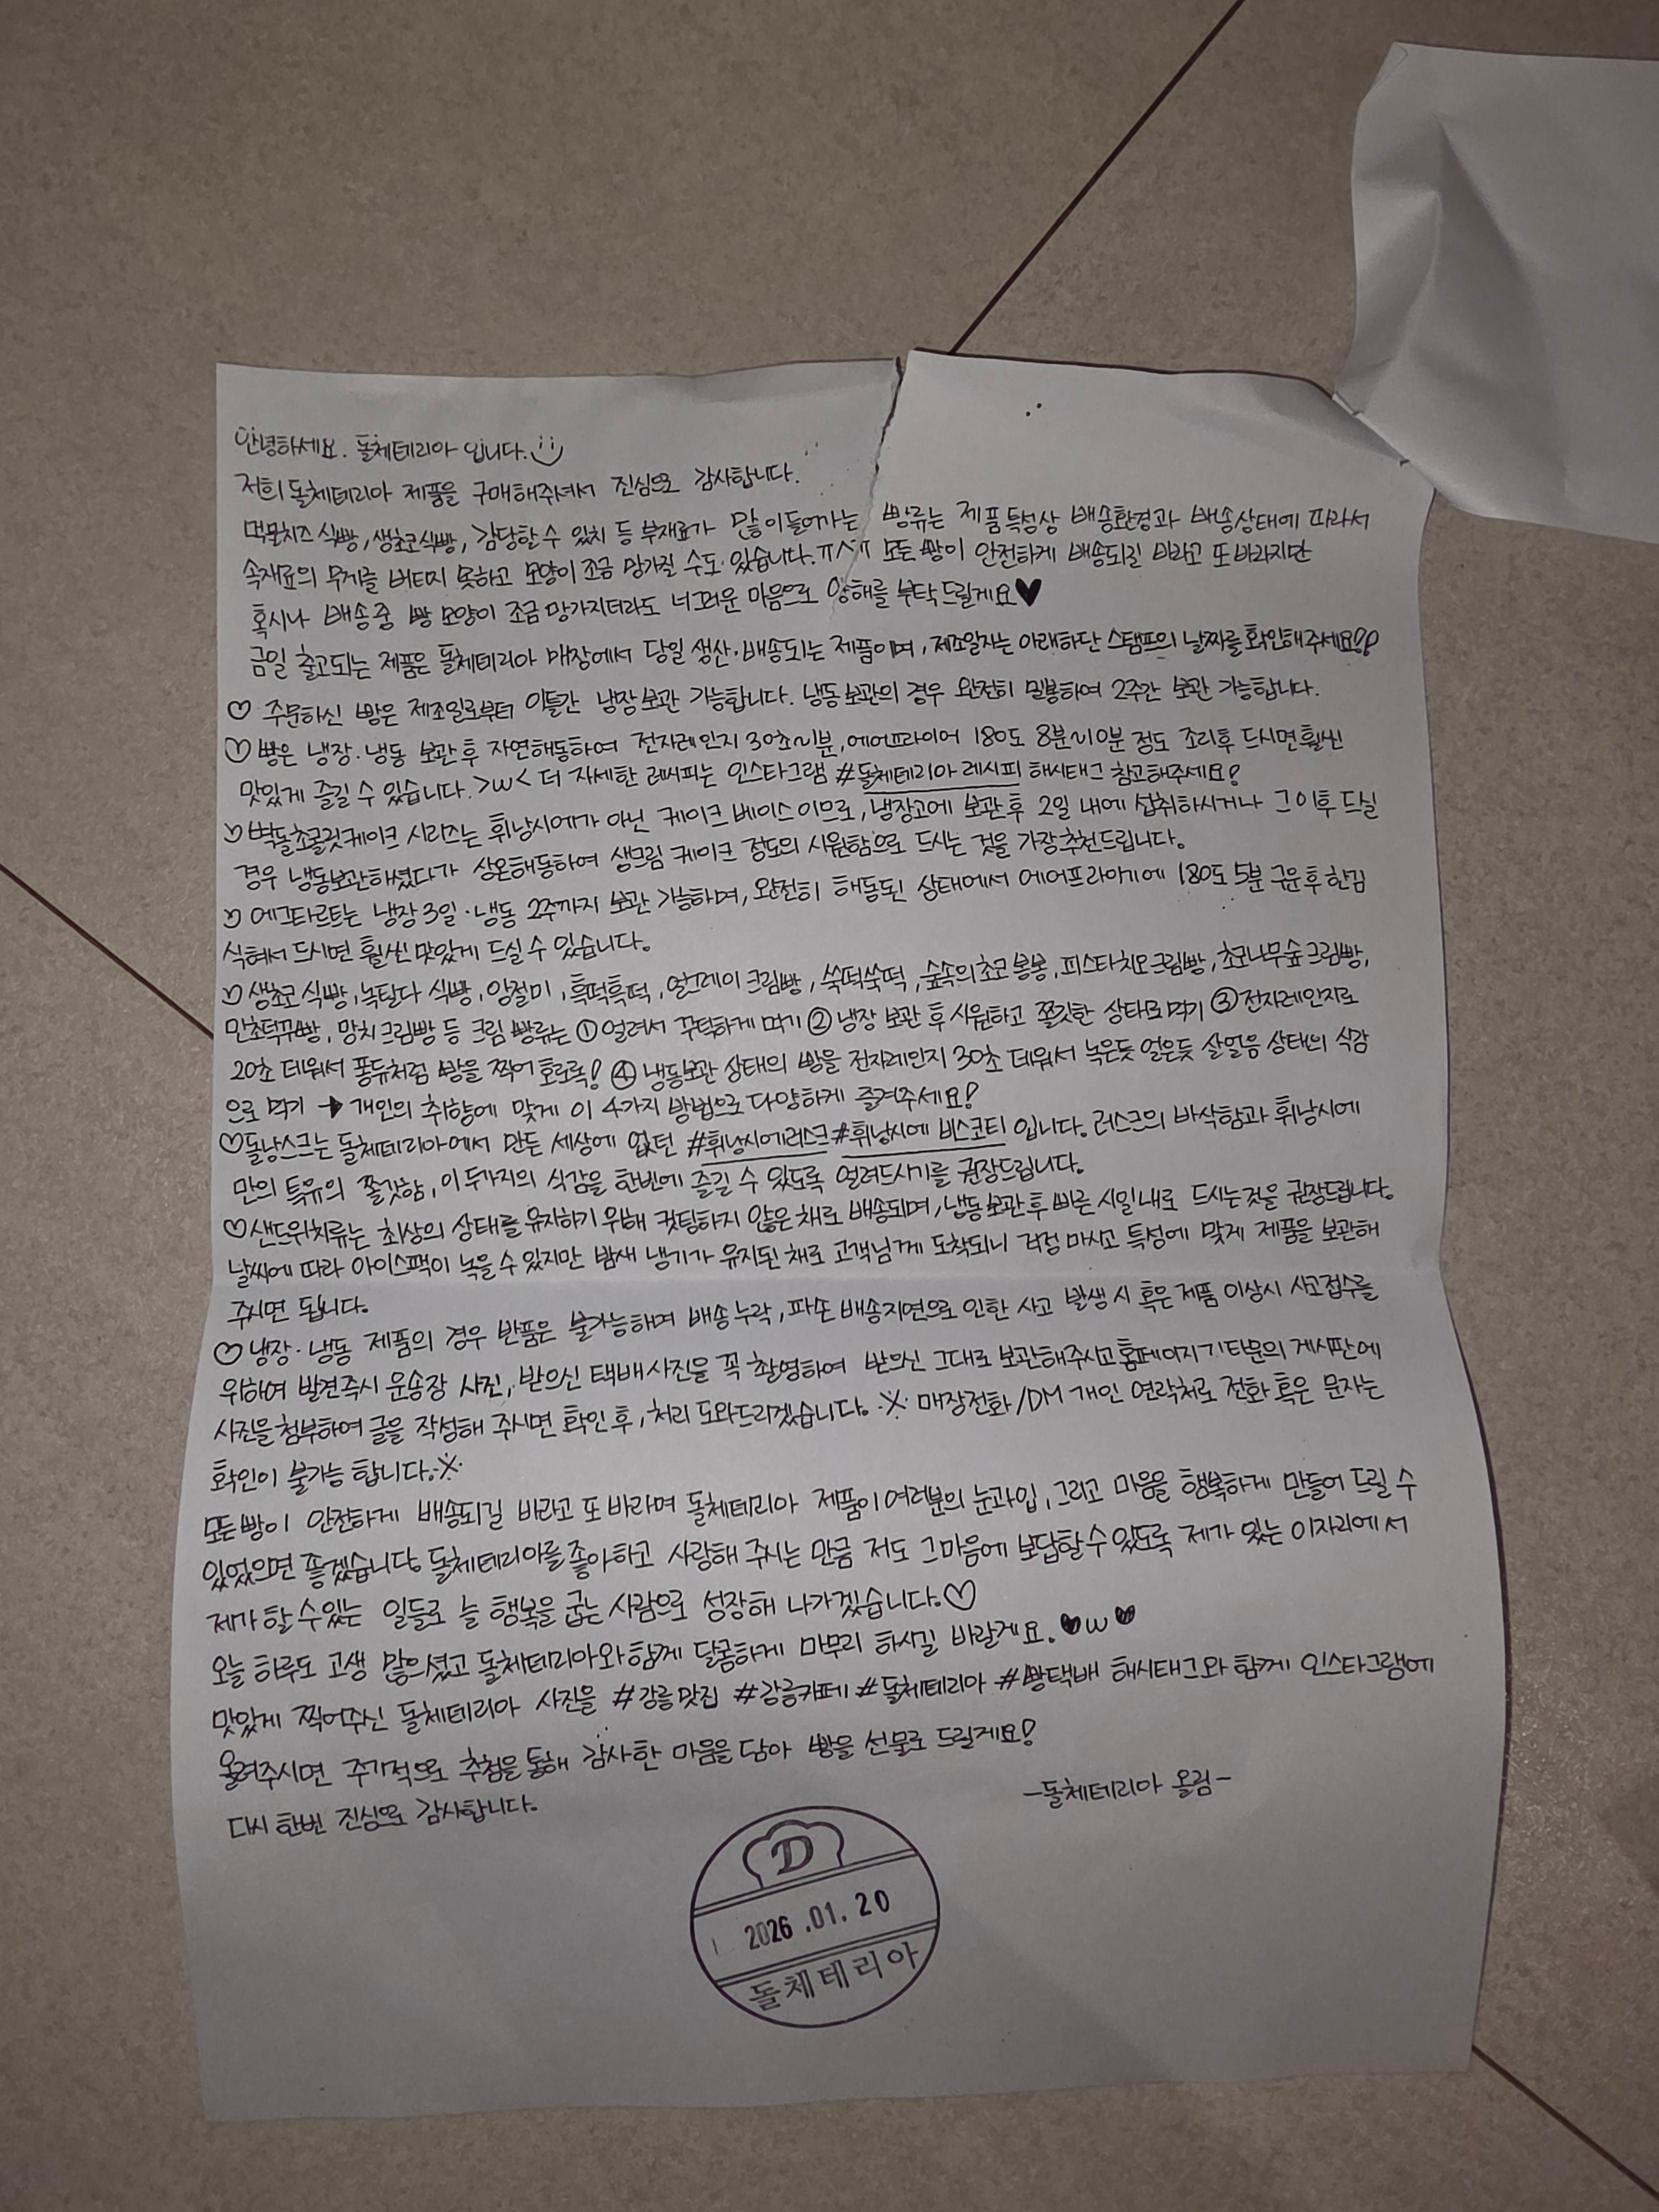 안녕하세요. 돌체테리아 입니다.
저희 돌체테리아 제품을 구매해주셔서 진심으로 감사합니다.
먹물치즈 식빵, 생초코식빵, 감당할 수 있치 등 부재료가 많이들어가는 빵류는 제품특성상 배송환경과 배송상태에 따라서
속재료의 무게를 버티지 못하고 모양이 조금 망가질 수도 있습니다.ㅠ^ㅠ 모든 빵이 안전하게 배송되길 바라고 또 바라지만
혹시나 배송 중 빵 모양이 조금 망가지더라도 너그러운 마음으로 양해를 부탁드릴게요♥
금일 출고되는 제품은 돌체테리아 매장에서 당일 생산·배송되는 제품이며, 제조일자는 아래하단 스탬프의 날짜를 확인해주세요!!
♡ 주문하신 빵은 제조일로부터 이틀간 냉장보관 가능합니다. 냉동보관의 경우 완전히 밀봉하여 2주간 보관 가능합니다.
♡ 빵은 냉장·냉동 보관후 자연해동하여 전자레인지 30초~1분, 에어프라이어 180도 8분~10분 정도 조리후 드시면 훨씬
맛있게 즐길 수 있습니다. >w< 더 자세한 레시피는 인스타그램 #돌체테리아 레시피 해시태그 참고해주세요!
♡ 벽돌초콜릿케이크 시리즈는 휘낭시에가 아닌 케이크 베이스이므로, 냉장고에 보관후 2일 내에 섭취하시거나 그 이후 드실
경우 냉동보관하셨다가 상온해동하여 생크림 케이크 정도의 시원함으로 드시는 것을 가장 추천드립니다.
♡ 에그타르트는 냉장3일·냉동 2주까지 보관 가능하며, 완전히 해동된 상태에서 에어프라이기에 180도 5분 구운 후 한김
식혀서 드시면 훨씬 맛있게 드실 수 있습니다.
♡ 생초코 식빵, 녹틸다 식빵, 앙절미, 흑떡흑떡, 얼그레이 크림빵, 쑥떡쑥떡, 숲속의초코 봉봉, 피스타치오크림빵, 초코나무숲 크림빵,
민초떡꾸빵, 망치크림빵 등 크림 빵류는 ① 얼려서 꾸덕하게 먹기 ② 냉장 보관 후 시원하고 쫄깃한 상태로 먹기 ③ 전자레인지로
20초 데워서 퐁듀처럼 빵을 찍어 호로록! ④ 냉동보관 상태의 빵을 전자레인지 30초 데워서 녹은듯 얼은듯 살얼음 상태의 식감
으로 먹기 → 개인의 취향에 맞게 이 4가지 방법으로 다양하게 즐겨주세요!
♡ 돌낭스크는 돌체테리아에서 만든 세상에 없던 #휘낭시에러스크 #휘낭시에 비스코티 입니다. 러스크의 바삭함과 휘낭시에
만의 특유의 쫄깃함, 이 두가지의 식감을 한번에 즐길 수 있도록 얼려드시기를 권장드립니다.
♡ 샌드위치류는 최상의 상태를 유지하기 위해 컷팅하지 않은 채로 배송되며, 냉동보관 후 빠른 시일내로 드시는것을 권장드립니다.
날씨에 따라 아이스팩이 녹을 수 있지만 밤새 냉기가 유지된 채로 고객님께 도착되니 걱정 마시고 특성에 맞게 제품을 보관해
주시면 됩니다.
♡ 냉장·냉동 제품의 경우 반품은 불가능하며 배송누락, 파손 배송지연으로 인한 사고 발생 시 혹은 제품 이상시 사고접수를
위하여 발견즉시 운송장 사진, 받으신 택배사진을 꼭 촬영하여 받으신 그대로 보관해주시고 홈페이지 기타문의 게시판에
사진을 첨부하여 글을 작성해 주시면 확인 후, 처리 도와드리겠습니다. ※ 매장전화/DM 개인 연락처로 전화 혹은 문자는
확인이 불가능 합니다.※
모든 빵이 안전하게 배송되길 바라고 또 바라며 돌체테리아 제품이 여러분의 눈과입, 그리고 마음을 행복하게 만들어 드릴 수
있었으면 좋겠습니다. 돌체테리아를 좋아하고 사랑해 주시는 만큼 저도 그마음에 보답할 수 있도록 제가 있는 이자리에서
제가 할 수있는 일들로 늘 행복을 굽는 사람으로 성장해 나가겠습니다.♡
오늘 하루도 고생 많으셨고 돌체테리아와 함께 달콤하게 마무리 하시길 바랄게요. ♥w♥
맛있게 찍어주신 돌체테리아 사진을 #강릉맛집 #강릉카페 #돌체테리아 #빵택배 해시태그와 함께 인스타그램에
올려주시면 주기적으로 추첨을 통해 감사한 마음을 담아 빵을 선물로 드릴게요!
다시 한번 진심으로 감사합니다.
-돌체테리아 올림-
D
2026.01.20
돌체테리아